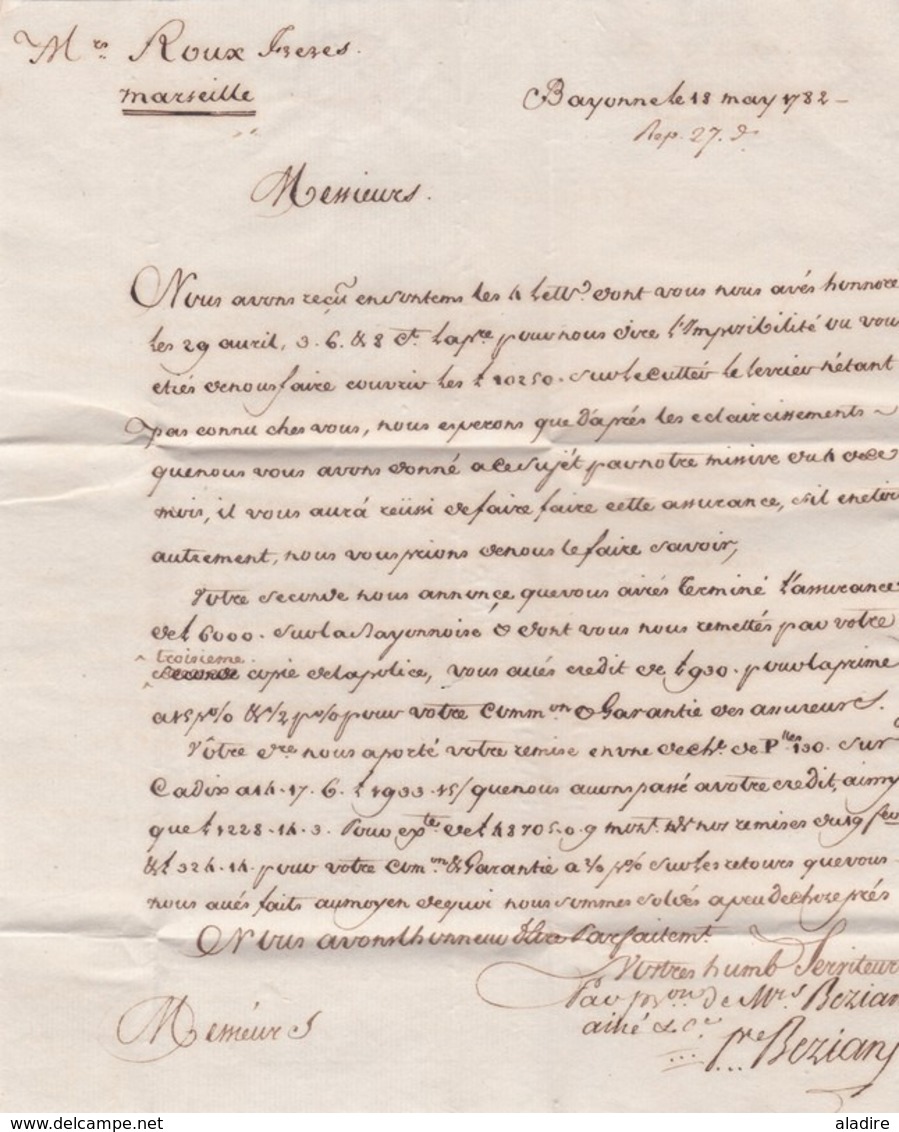 Mrs Roux freres.
Marseille
Bayonne le 18 may 1782 -
Rep. 27. do
Messieurs.
Nous avons reçu en son tems les 4 lettrs dont vous nous avés honnoré
les 29 avril, 3. 6. & 8 Ct. la pre pour nous dire l'Impossibilité ou vous
etiés de nous faire couvrir les £ 10250. sur le Cutter le levrier n'étant
pas connu ches vous, nous esperons que d'après les eclaircissements
que nous vous avons donné a ce sujét par notre missive du 4 de ce
mois, il vous aurá réüssi de faire faire cette assurance, s'il en etoit
autrement, nous vous prions de nous le faire savoir,
Votre seconde nous annonce que vous aviés terminé l'assurance
de £ 6000. sur la Bayonnoise & dont vous nous remettés par votre
troisieme
seconde copie de la police, vous avés credit de £ 930. pour la prime
a 15 p% & 1/2 p% pour votre Common & Garantie des assureurs.
Vôtre dre nous a porté votre remise en une de ch. de Plles 130. sur
Cadix a 14. 17. 6. £ 1933.15/ que nous avons passé a votre credit, ainsy
que £ 1228.14.3. Pour de £ 48705.0.9 mont. de nos remises du 19 fevr
& £ 324.14. pour votre Comon & Garantie a p% sur les retours que vous
nous avés faits au moyen de quoi nous sommes soldés a peu de chose près
Nous avons l'honneur d'être Parfaitemt.
Votres humb Serviteur
Par pron de Mrs Bezian
ainé & Ce
Messieurs
Pre Bezian
aladire